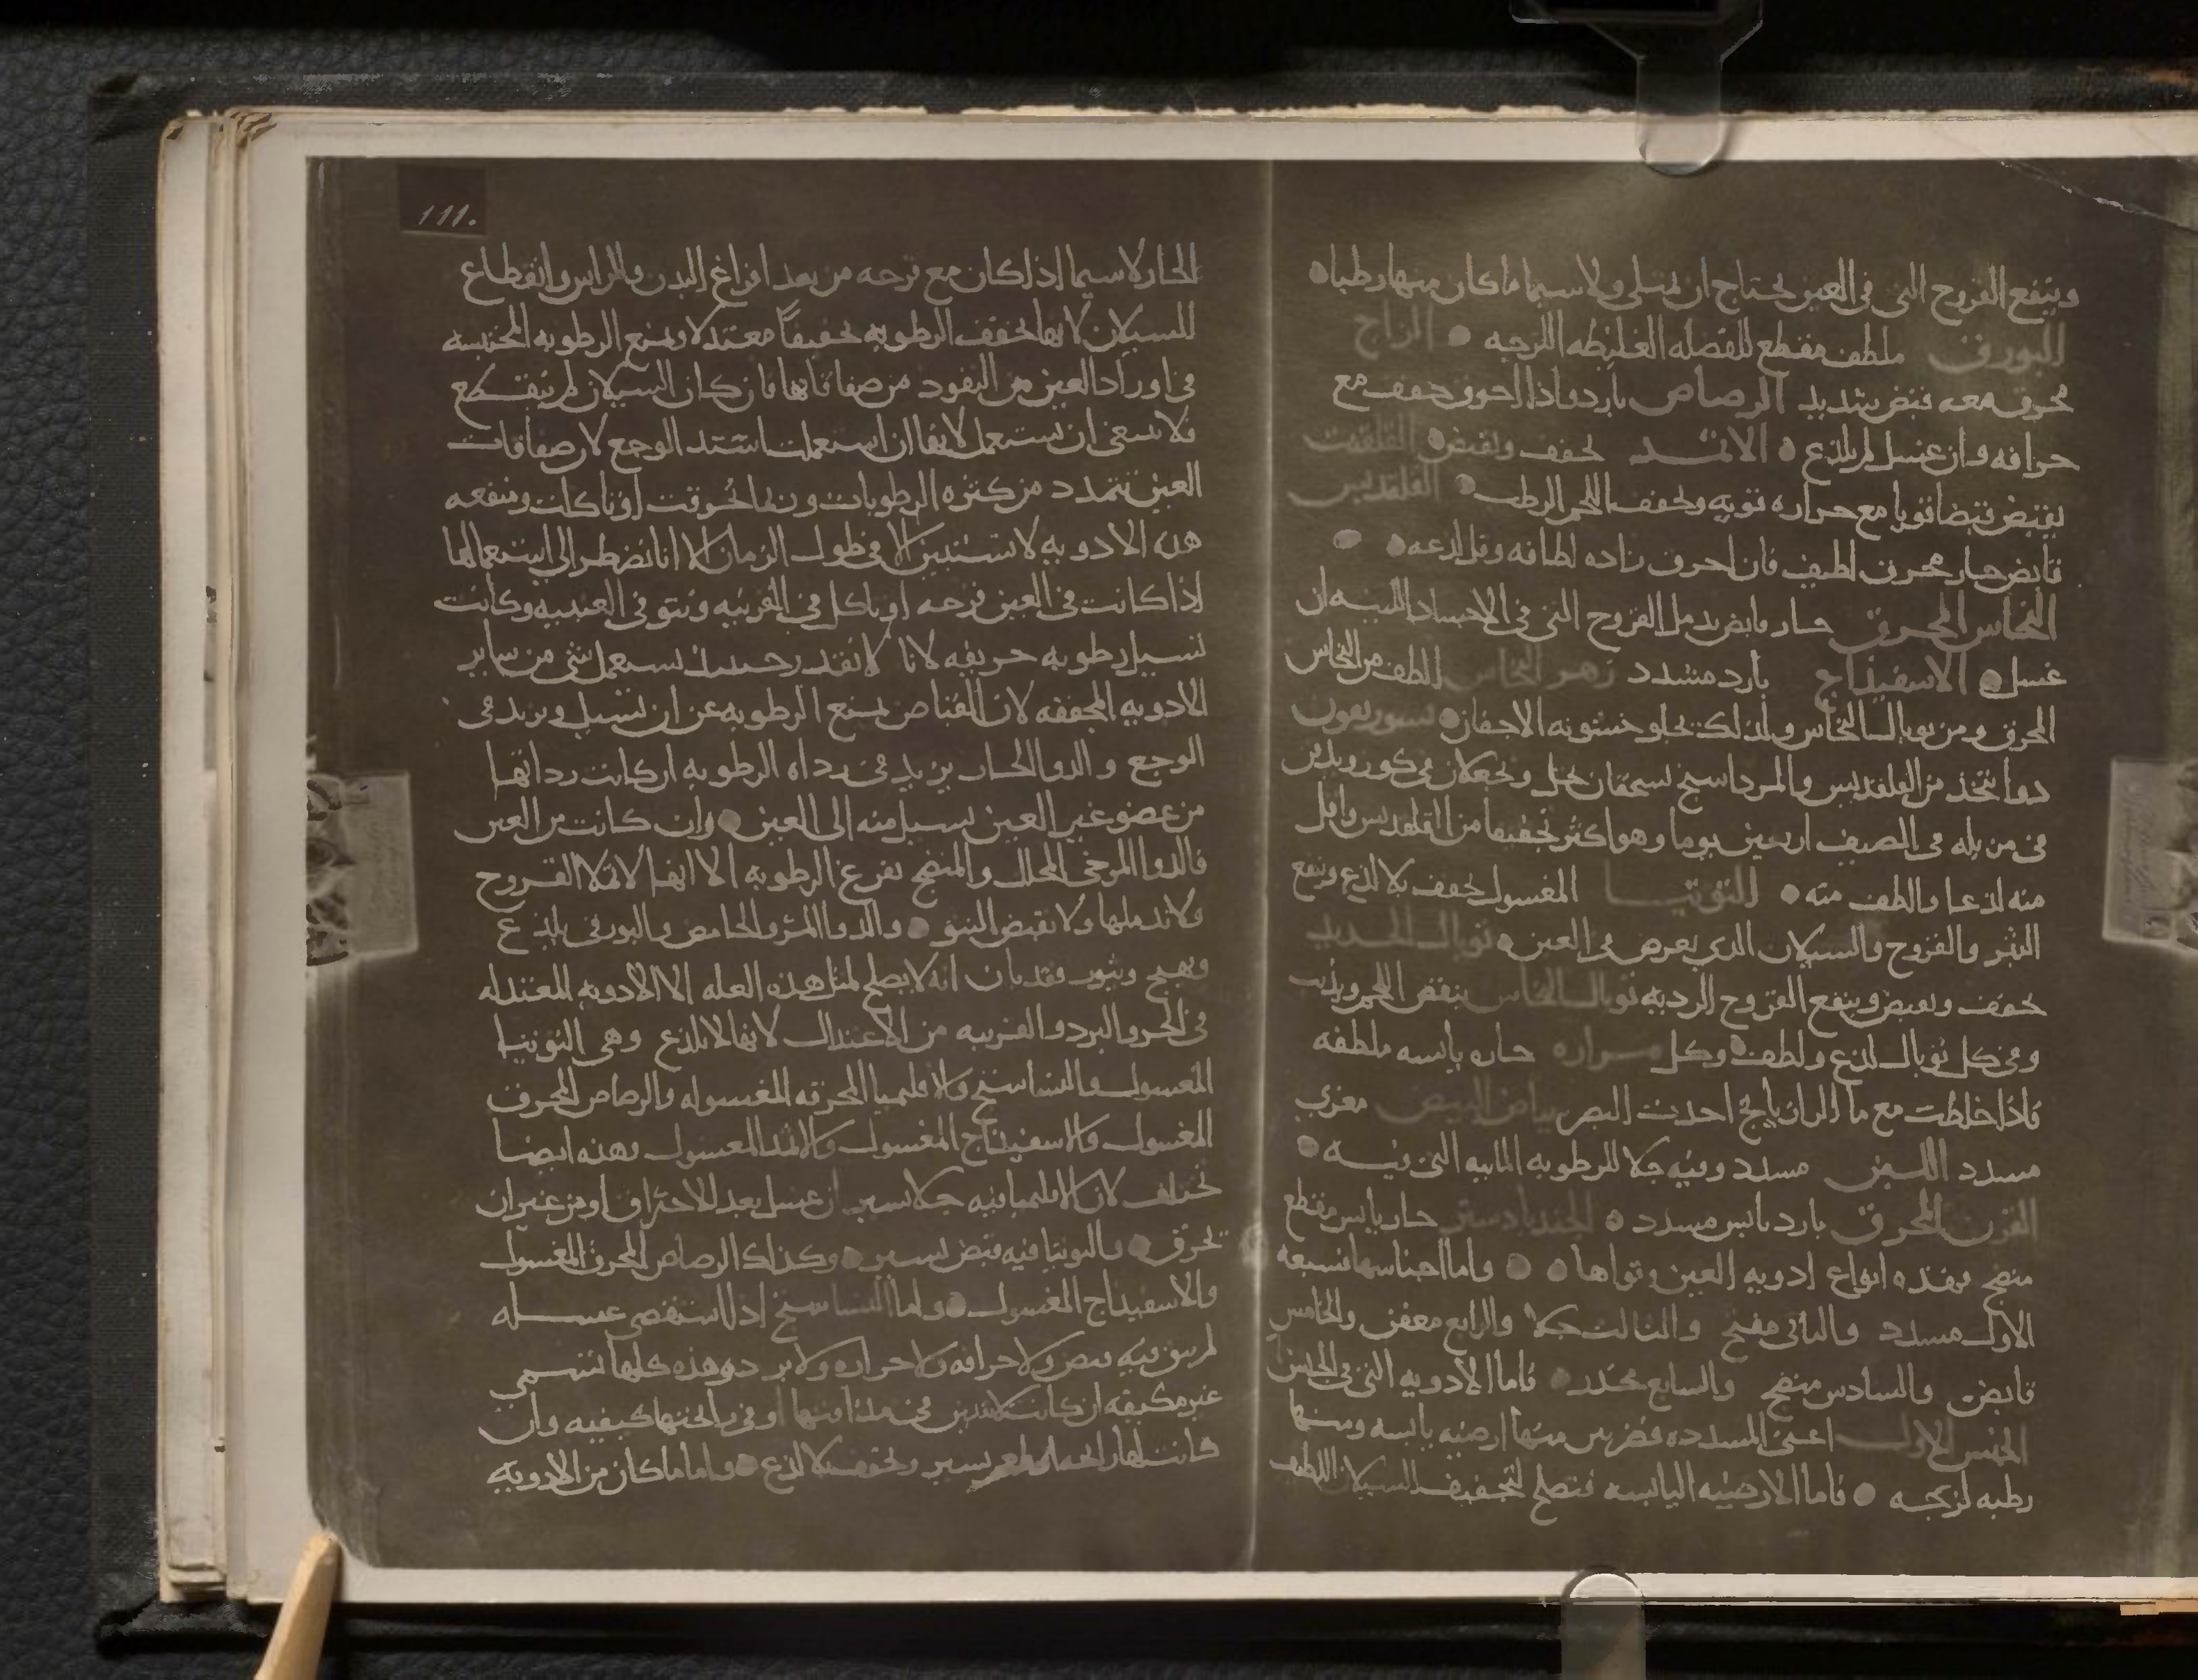 وينفع القروح التي في العين تحتاج ان تمتلي ولا سيما ما كان منها رطبا
البورق ملطف مقطع للفضله الغليظه اللزجه الزاج
محرق معه قبض شديد الرصاص بارد واذا احرق جفف مع
حرافه وان غسل لم يلذع الاثمد يجفف ويقبض القلقنت
يقبض قبضا قويا مع حراره قويه ويجفف اللحم الرطب القلقديس
قابض حار محرق لطيف فان احرق زاده لطافه وقل لذعه
النحاس المحرق حار قابض يدمل القروح التي في الاجساد اللينه ان
غسل الاسفيذاج بارد مشدد زهر النحاس الطف من النحاس
المحرق ومن توبال النحاس ولذلك يجلو خشونه الاجفان
دوا يتخذ من القلقديس والمرداسنج يسحقان بخل ويجعلان في كوز ويدفن
في مزبله في الصيف اربعين يوما وهو اكثر تجفيفا من القلقديس واقل
منه لذعا والطف منه التوتيا المغسول يجفف بلا لذع وينفع
البثر والقروح والسيلان الذي يعرض في العين توبال الحديد
يجفف ويقبض وينفع القروح الرديه توبال النحاس ينقص اللحم ويذيب
وفي كل توبال لذع ولطف وكل مراره حاره يابسه ملطفه
فاذا خلطت مع ما الرازيانج احدت البصر بياض البيض مغري
مسدد اللبن مسدد وفيه جلا للرطوبه المائيه التي فيه
القرن المحرق بارد يابس مسدد الجندبادستر حار يابس مقطع
منضج فهذه انواع ادويه العين وقواها واما اجناسها فسبعه
الاول مسدد والثاني مفتح والثالث جلا والرابع معفن والخامس
قابض والسادس منضج والسابع مخدر فاما الادويه التي في الجنس
الجنس الاول اعني المسدده فضربين منها ارضيه يابسه ومنها
رطبه لزجه فاما الارضيه اليابسه فتصلح لتجفيف السيلان اللطيف
111.
الحار لا سيما اذا كان مع قرحه من بعد افراغ البدن والراس وانقطاع
السيلان لانها تجفف الرطوبه تجفيفا معتدلا وتمنع الرطوبه المحتبسه
في اوراد العين من النفوذ من صفاقاتها فان كان السيلان لم ينقطع
فلا ينبغي ان تستعمل لانها ان استعملت اشتد الوجع لان صفاقات
العين تتمدد من كثره الرطوبات وربما انخرقت او تاكلت ومنفعه
هذه الادويه لا تستبين الا في طول الزمان الا انا نضطر الى استعمالها
اذا كانت في العين قرحه او تاكل في القرنيه ونتو في العنبيه وكانت
تسيل رطوبه حريفه لانا لا نقدر حينئذ نستعمل شي من ساير
الادويه المجففه لان القباض يمنع الرطوبه عن ان تسيل ويزيد في
الوجع والدوا الحار يزيد في رداه الرطوبه ان كانت رداتها
من عضو غير العين يسيل منه الى العين وان كانت من العين
فالدوا المرخي المحلل والمنضج يفرغ الرطوبه الا انها لا تملا القروح
ولا تدملها ولا تقبض النتو والدوا المز والحامض والبورقي يلذع
ويهيج ويثور فقد بان انه لا يصلح لمثل هذه العله الا الادويه المعتدله
في الحر والبرد والقريبه من الاعتدال لانها لا تلذع وهي التوتيا
المغسول والنشاستج والاقليميا المحرقه المغسوله والرصاص المحرق
المغسول والاسفيذاج المغسول والاثمد المغسول وهذه ايضا
تختلف لان الاقليميا فيه جلا يسير ان غسل بعد الاحتراق او من غير ان
تحرق والتوتيا فيه قبض يسير وكذلك الرصاص المحرق المغسول
والاسفيذاج المغسول واما النشاستج اذا استقصي غسله
لم يبق فيه قبض ولا حرافه ولا حراره ولا برد وهذه كلها تسمى
غير مكيفه ان كانت لا تبين في مذاقتها او في رائحتها كيفيه وان
كانت لها يسير وتجفف بلا لذع واما ما كان من الادويه